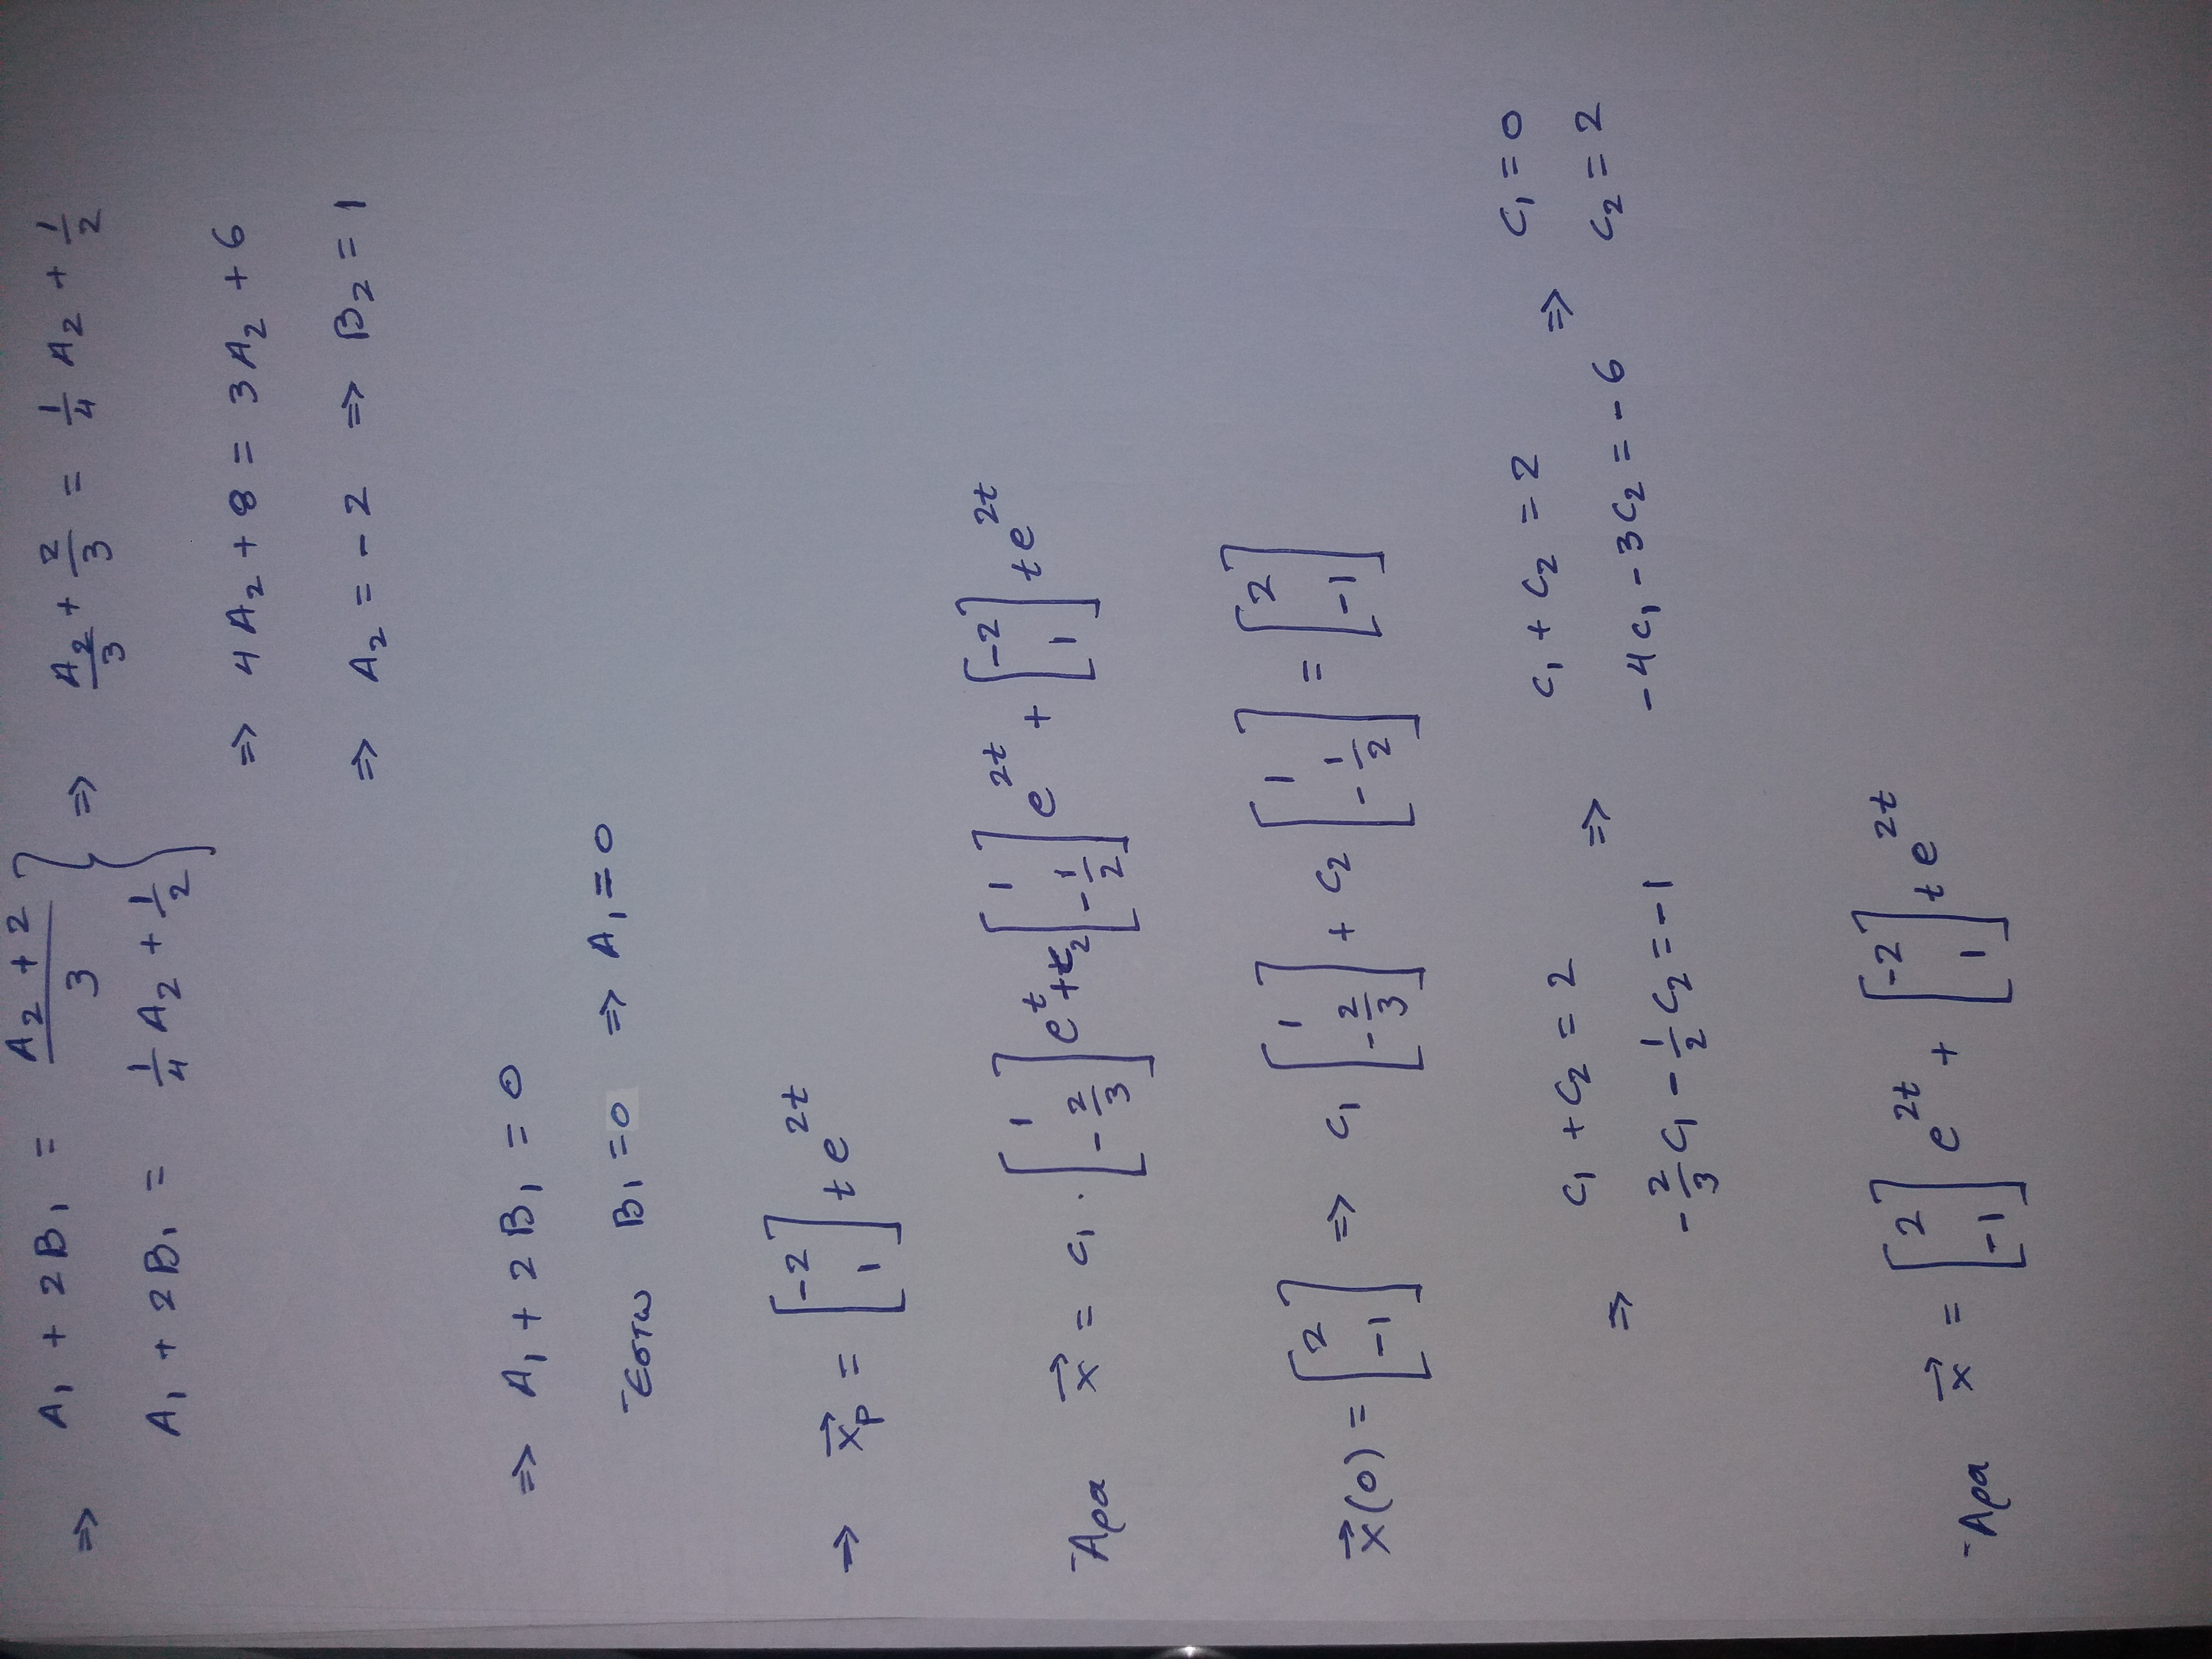 ⇒ A₁ + 2B₁ = (A₂ + 2)/3 } ⇒ A₂/3 + 2/3 = 1/4 A₂ + 1/2
A₁ + 2B₁ = 1/4 A₂ + 1/2
⇒ 4A₂ + 8 = 3A₂ + 6
⇒ A₂ = -2 ⇒ B₂ = 1
⇒ A₁ + 2B₁ = 0
Έστω B₁ = 0 ⇒ A₁ = 0
→ x⃗ₚ = [-2; 1] t e^{2t}
Άρα x⃗ = c₁ · [1; -2/3] e^t + c₂ [1; -1/2] e^{2t} + [-2; 1] t e^{2t}
x⃗(0) = [2; -1] ⇒ c₁ [1; -2/3] + c₂ [1; -1/2] = [2; -1]
⇒ c₁ + c₂ = 2 ⇒ c₁ + c₂ = 2 ⇒ c₁ = 0
-2/3 c₁ - 1/2 c₂ = -1 -4c₁ - 3c₂ = -6 c₂ = 2
Άρα x⃗ = [2; -1] e^{2t} + [-2; 1] t e^{2t}